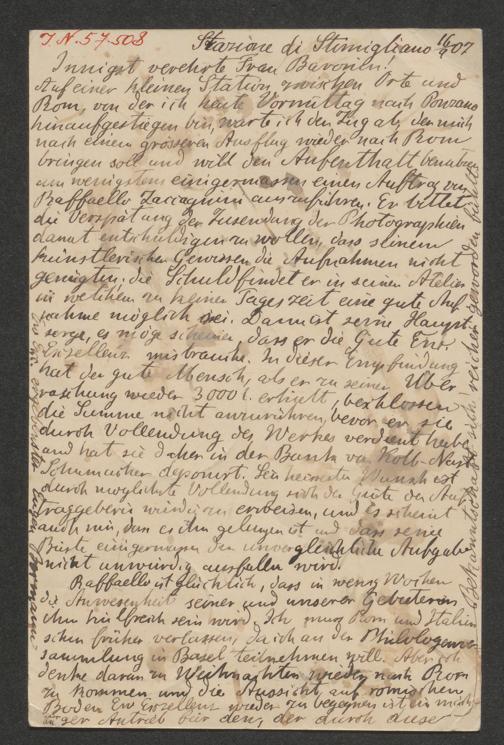 J.N. 57.508
Stazione di Stimigliano 16/9 07
Innigst verehrte Frau Baronin!
Auf einer kleinen Station, zwischen Orte und
Rom, von der ich heute Vormittag nach
hinaufgestiegen bin, warte ich den Zug ab, der mich
nach einem grösseren Ausflug wieder nach Rom
bringen soll und will den Aufenthalt benutzen
um wenigstens einigermassen einen Auftrag von
Raffaello Zaccagnini auszuführen. Er bittet
die Verspätung der Zusendung der Photographien
damit entschuldigen zu wollen, dass seinem
künstlerischen Gewissen die Aufnahmen nicht
genügten. die Schuld findet er in seinem Atelier
in welchem zu keiner Tageszeit eine gute Auf-
nahme möglich sei. Dann ist seine Haupt-
sorge, es möge scheinen, dass er die Güte Euer
Exzellenz missbrauche. In dieser Empfindung
hat der gute Mensch, als er zu seiner Über-
raschung wieder 3000 L. erhielt, beschlossen
die Summe nicht anzurühren, bevor er sie
durch Vollendung des Werkes verdient habe
und hat sie daher in der Bank von
Schumacher deponirt. Sein heissester Wunsch ist
durch möglichste Vollendung sich der Güte der Auf-
traggeberin würdig zu erweisen, und es scheint
auch mir, dass es ihm gelungen ist und dass seine
Büste einigermassen der unvergleichlichen Aufgabe
nicht unwürdig ausfallen wird.
Raffaello ist glücklich, dass in wenig Wochen
die Anwesenheit seiner und unserer Gebieterin
ihm hilfreich sein wird. Ich muss Rom und Italien
schon früher verlassen, da ich an der Philologenver-
sammlung in Basel teilnehmen will. Aber ich
denke daran zu Weihnachten wieder nach Rom
zu kommen und die Aussicht, auf römischem
Boden Ew Exzellenz wieder zu begegnen ist ein mäch-
tiger Antrieb für den, der durch diese
Bekanntschaft sich reicher geworden fühlt
Ew Exz. ergebenster Eugen Bormann